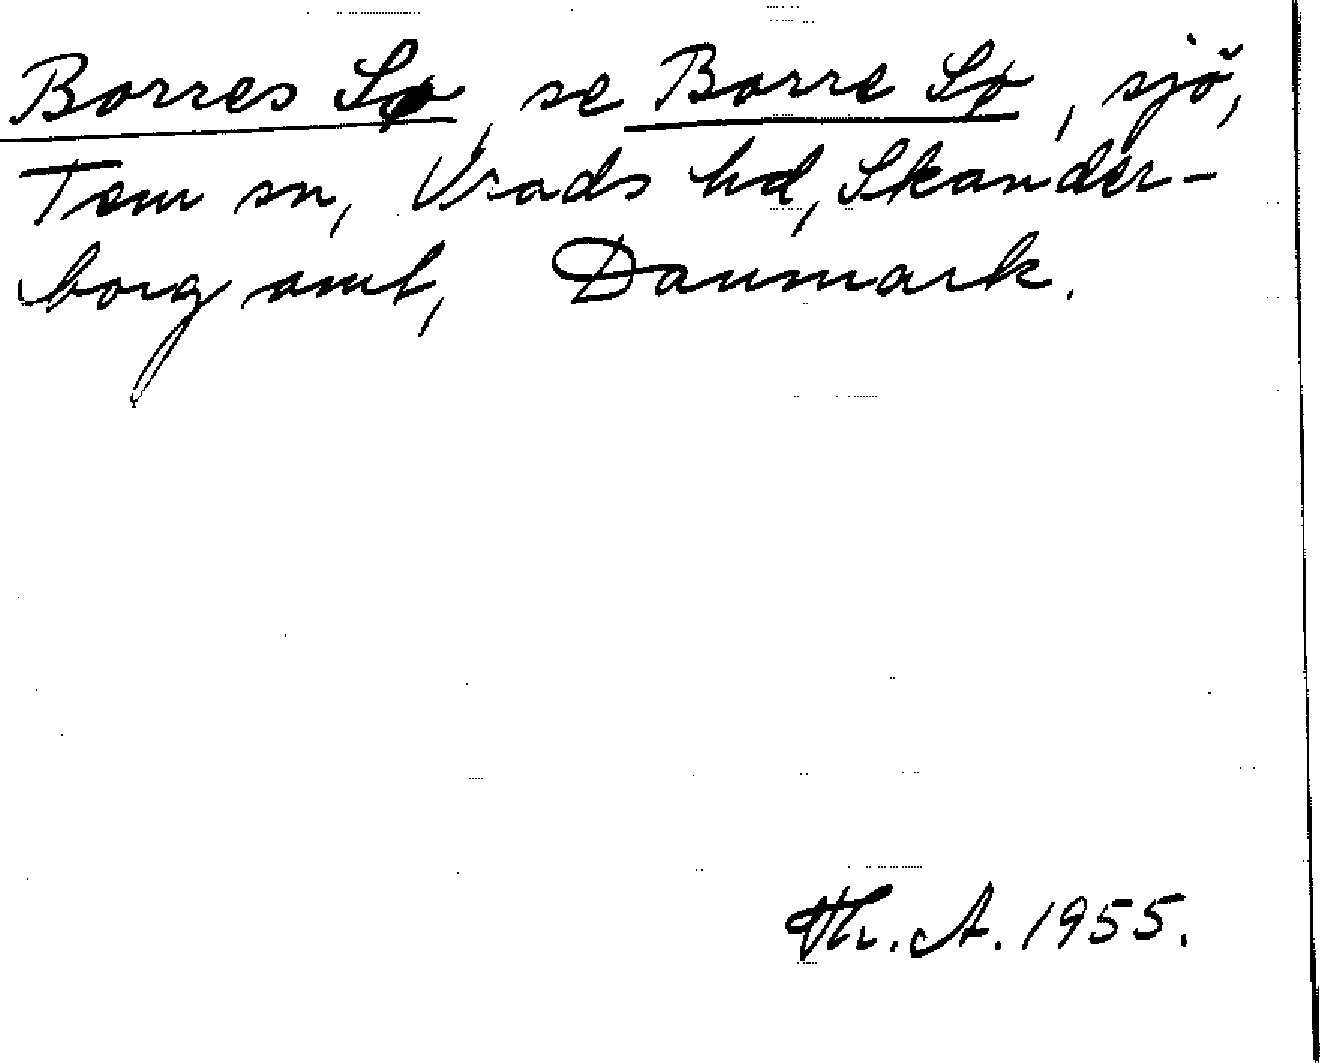 Borres Sø, se Borre Sø, sjö,
Tem sn, Vrads hd, Skander-
borg amt, Danmark.
Th. A. 1955.